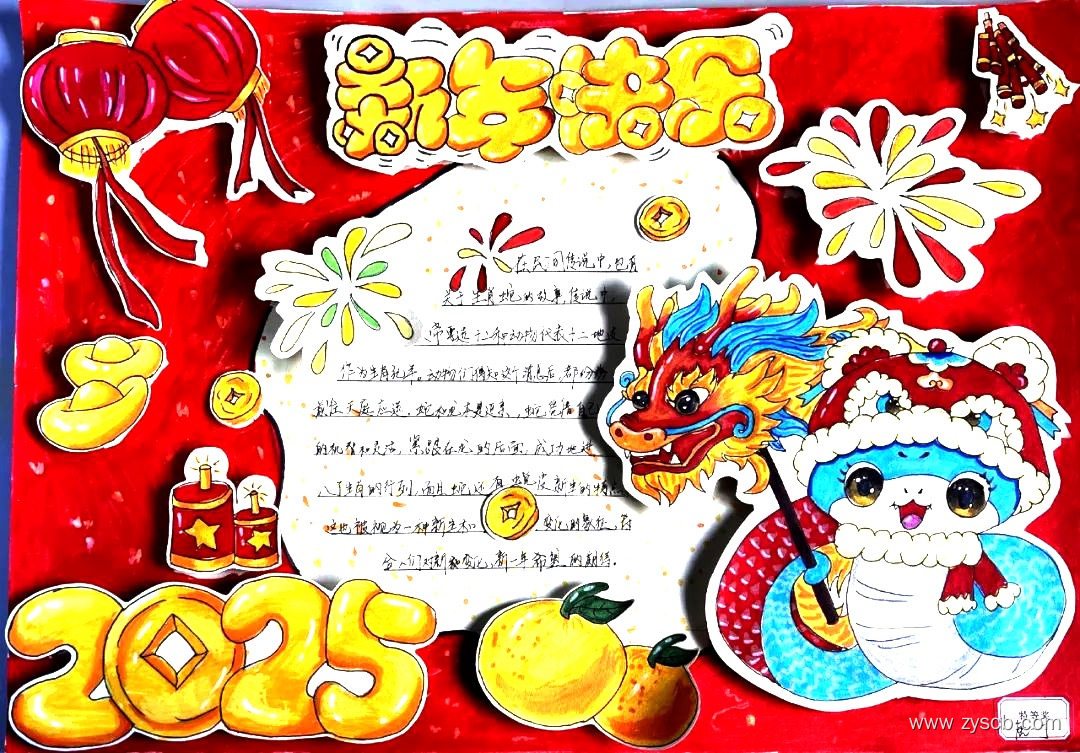 新年快乐
在民间传说中,也有
关于生肖蛇的故事,传说中,
需选十二种动物代表十二地支
作为生肖轮年。动物们得知这个消息后,都纷纷
前往天庭应选,蛇和龙本是近亲,蛇凭借自己
的机智和灵活,紧跟在龙的后面,成功地进
入了生肖的行列,而且蛇还有蜕皮新生的特点
这也被视为一种新生和变化的象征,符
合人们对新和变化,新一年希望的期待。
2025
特等奖
www.zyscb.com